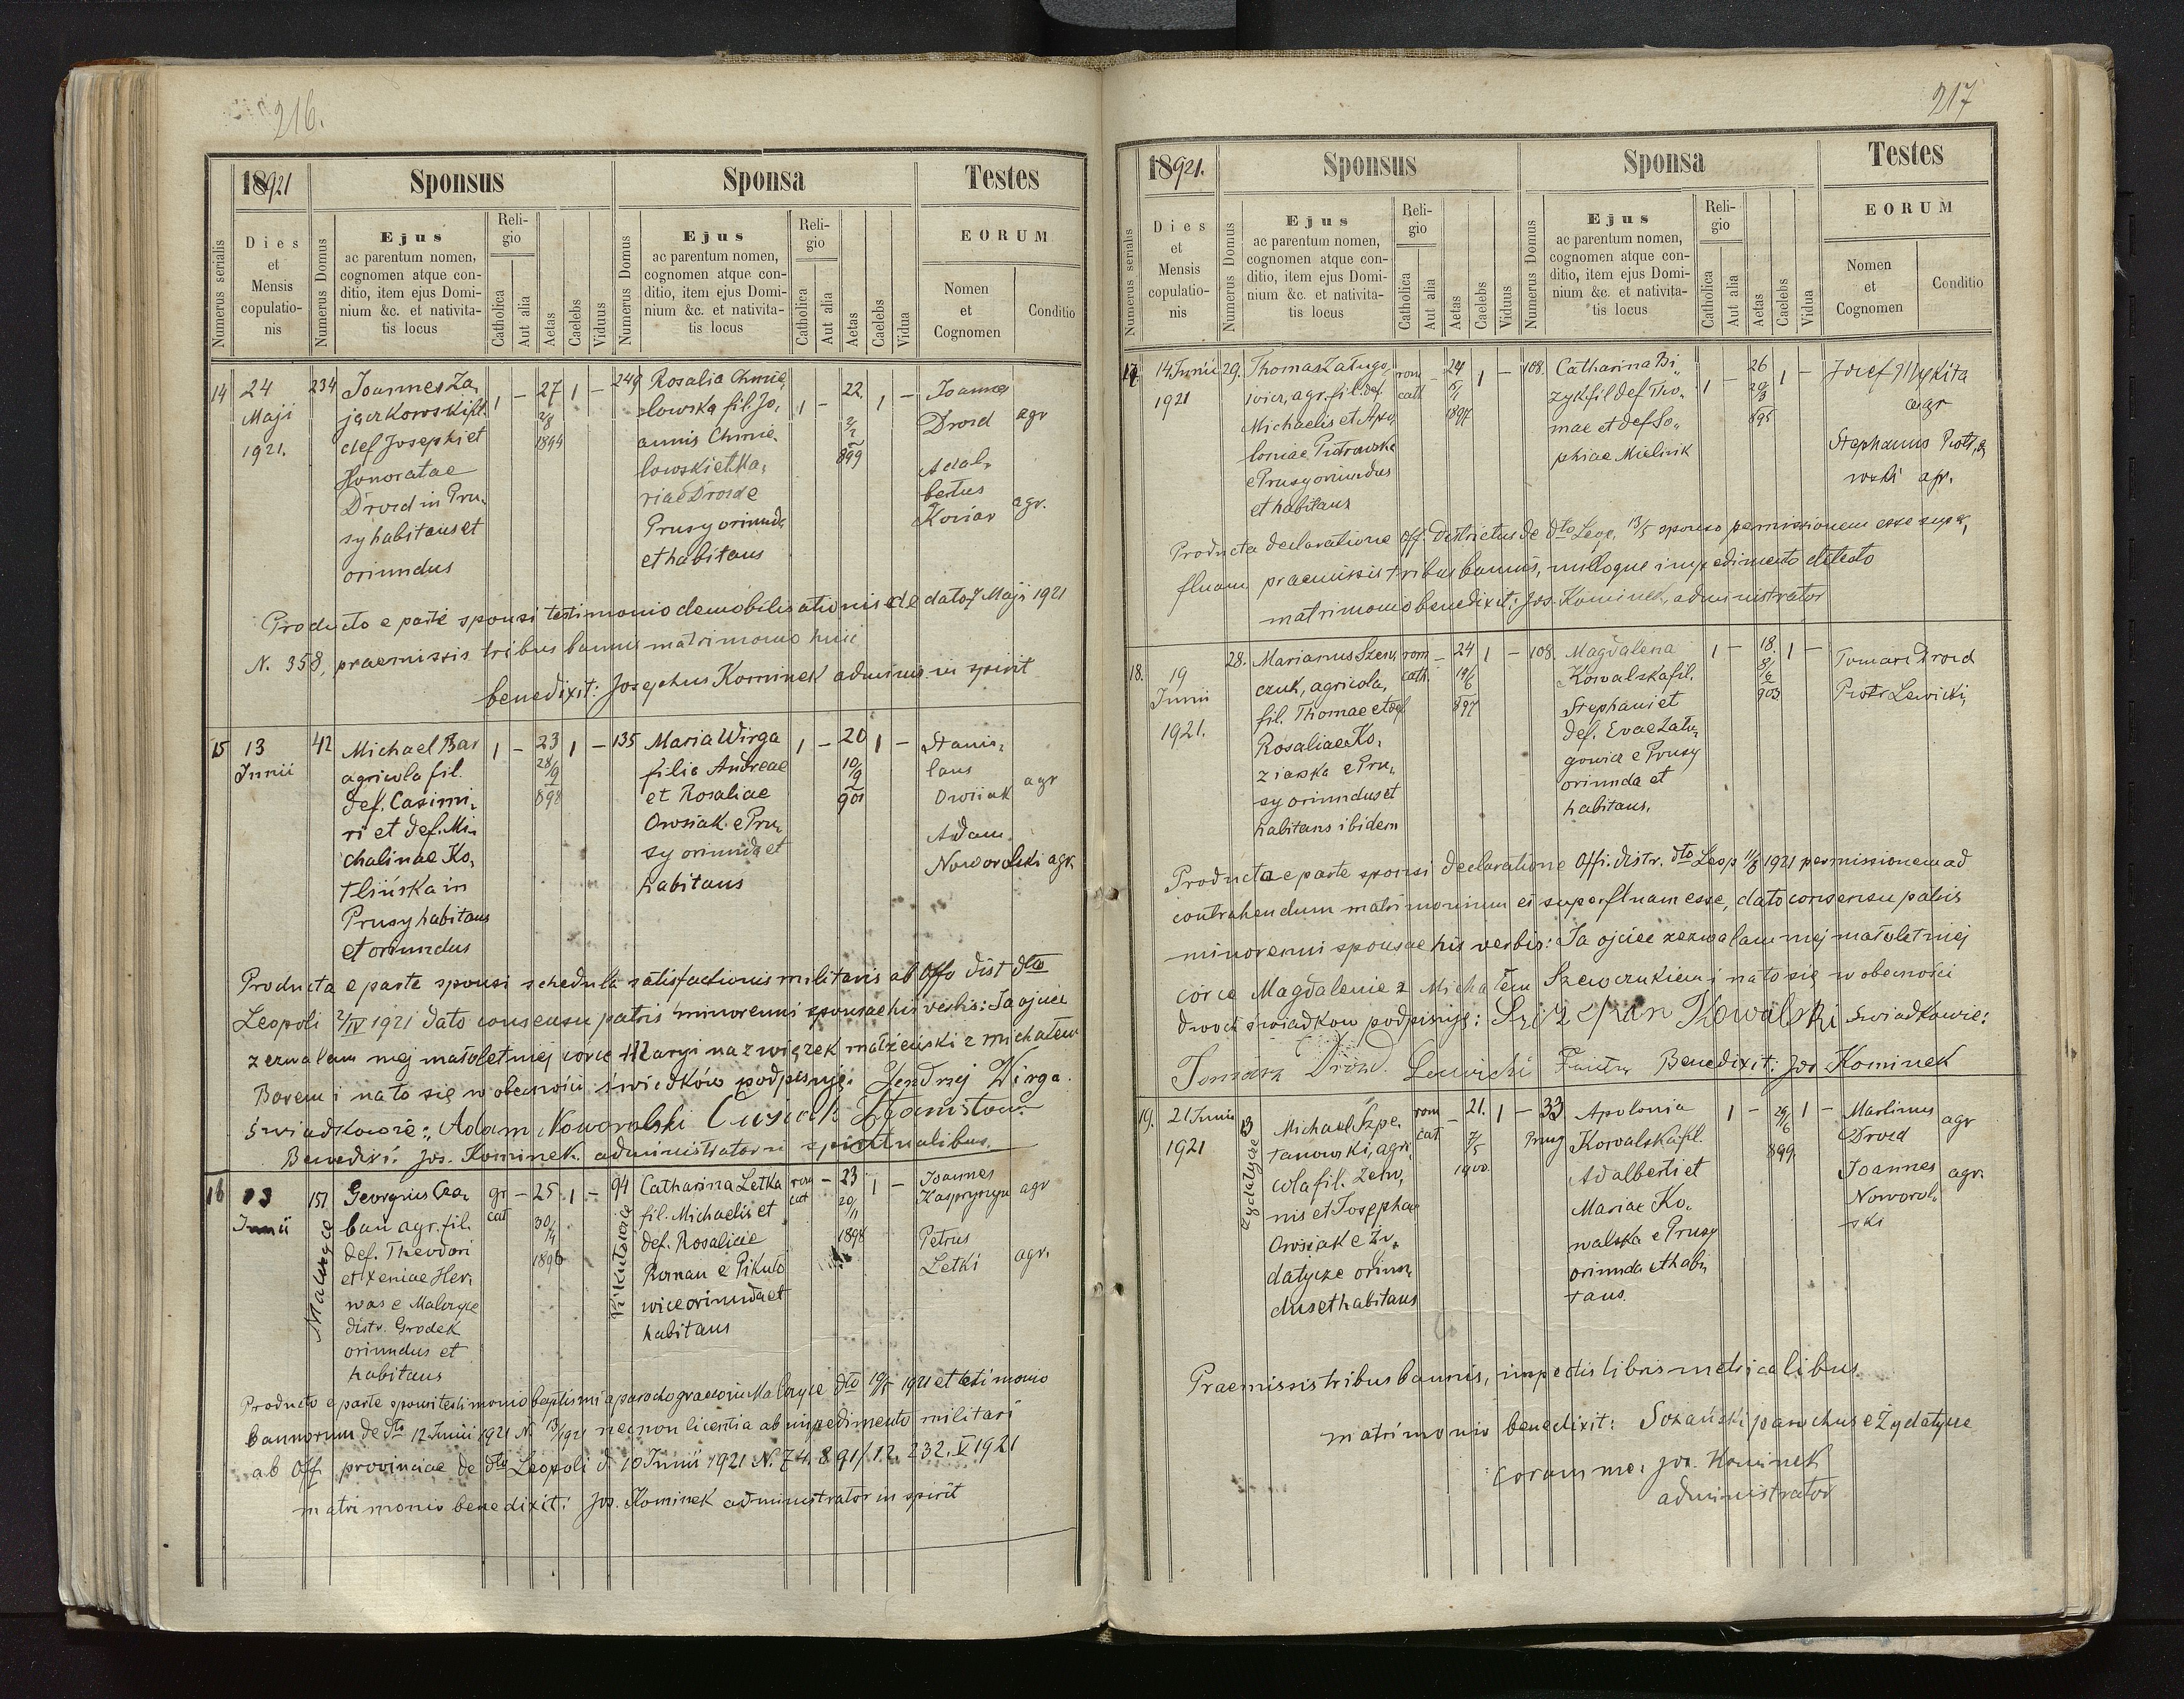 216.
18921
Sponsus
Sponsa
Testes
Numerus serialis
Dies
et
Mensis
copulatio-
nis
Numerus Domus
Ejus
ac parentum nomen,
cognomen atque con-
ditio, item ejus Domi-
nium &c. et nativita-
tis locus
Reli-
gio
Catholica
Aut alia
Aetas
Caelebs
Viduus
Numerus Domus
Ejus
ac parentum nomen,
cognomen atque con-
ditio, item ejus Domi-
nium &c. et nativita-
tis locus
Reli-
gio
Catholica
Aut alia
Aetas
Caelebs
Vidua
EORUM
Nomen
et
Cognomen
Conditio
14
24
Maji
1921.
234
Joannes Za„
jączkowski fil.
def Josephi et
Honoratae
Drozd in Pru„
sy habitans et
oriundus
1 –
27
2/8
1894
1 –
249
Rosalia Chmie„
lowska fil. Jo„
annis Chmie„
lowski et Ma„
riae Drozd e
Prusy oriunda
et habitans
1 –
22.
2/2
899
1 –
Joannes
Drozd agr
Adal„
bertus
Koziar agr.
Producto e parte sponsi testimonio demobilisationis de dato 7 Maji 1921
N. 358, praemissis tribus bannis matrimonio huic
benedixit: Josephus Kominek adminis. in spirit
15
13
Junii
42
Michael Bar
agricola fil.
def. Casimi„
ri et def. Mi„
chalinae Ko„
tlińska in
Prusy habitans
et oriundus
1 –
23
28/9
898
1 –
135
Maria Wirga
filia Andreae
et Rosaliae
Owsiak e Pru„
sy oriunda et
habitans
1 –
20
10/9
901
1 –
Stanis„
laus
Owsiak agr
Adam
Noworolski agr.
Producta e parte sponsi schedula satisfactionis militaris ab Offo dist dto
Leopoli 2/IV 1921 dato consensu patris minorenni sponsae his verbis: Ja ojciec
zezwalam mej małoletniej córce Maryi na związek małżeński z Michałem
Barem i na to się w obecności świadków podpisuję. Jendrzej Wirga.
Świadkowie: Adam Noworolski Owsiak Stanisław
Benedixi: Jos. Kominek administrator in spiritualibus.
16
13
Junii
151
Malczyce
Georgius Cza„
ban agr. fil.
def. Theodori
et Xeniae Her„
was e Malczyce
distr. Grodek
oriundus et
habitans
gr
cat
– 25
30/4
1896
1 –
94
Pikułowice
Catharina Letka
fil. Michaelis et
def. Rosaliae
Roman e Pikuło
wice oriunda et
habitans
rom
cat
– 23
20/11
1898
1 –
Joannes
Kasprzyszyn agr
Petrus
Letki agr.
Producto e parte sponsi testimonio baptismi a parocho graeco in Malczyce dto 19/5 1921 et testimonio
bannorum de dto 12 Junii 1921 N. 13/1921 necnon licentia ab impedimento militari
ab Off. provinciae de dto Leopoli d. 10 Junii 1921 N. 74.891/12.232. V 1921
matrimonio benedixit: Jos. Kominek administrator in spirit
217
18921.
Sponsus
Sponsa
Testes
Numerus serialis
Dies
et
Mensis
copulatio-
nis
Numerus Domus
Ejus
ac parentum nomen,
cognomen atque con-
ditio, item ejus Domi-
nium &c. et nativita-
tis locus
Reli-
gio
Catholica
Aut alia
Aetas
Caelebs
Viduus
Numerus Domus
Ejus
ac parentum nomen,
cognomen atque con-
ditio, item ejus Domi-
nium &c. et nativita-
tis locus
Reli-
gio
Catholica
Aut alia
Aetas
Caelebs
Vidua
EORUM
Nomen
et
Cognomen
Conditio
17.
14 Junii
1921
29.
Thomas Załugo„
wicz, agr. fil. def.
Michaelis et Apo„
loniae Piotrowska
e Prusy oriundus
et habitans
rom
cath
– 24
5/1
1897
1 –
108.
Catharina Bi„
zyk fil def Tho„
mae et def So„
phiae Mielnik
1 –
26
20/3
895
1 –
Józef Mykita
agr
Stephanus Piotr„
wski agr.
Producta declaratione Off. Districtus de dto Leop. 13/5 sponso permissionem esse super„
fluam praemissis tribus bannis, nulloque impedimento detecto
matrimonio benedixit: Jos. Kominek, administrator
18.
19
Junii
1921.
28.
Marianus Szew„
czuk, agricola,
fil. Thomae et def
Rosaliae Ko„
ziarska e Pru„
sy oriundus et
habitans ibidem
rom
cath.
– 24
19/6
897
1 –
108.
Magdalena
Kowalska fil.
Stephani et
def. Evae Zału„
gowicz e Prusy
oriunda et
habitans.
1 –
18.
8/6
903
1 –
Tomasz Drozd
Piotr Lewicki,
Producta e parte sponsi declaratione Offi. distr. dto Leop 11/6 1921 permissionem ad
contrahendum matrimonium ei superfluam esse, dato consensu patris
minorenni sponsae his verbis: Ja ojciec zezwalam mej małoletniej
córce Magdalenie z Michałem Szewczukiem i na to się w obecności
dwóch świadków podpisuję: Szczepan Kowalski świadkowie:
Tomasz Drozd. Lewicki Benedixit: Jos Kominek
19.
21 Junii
1921
13
Żydatycze
Michael Szpe„
tanowski, agri„
cola fil. Zeno„
nis et Josephae
Owsiak e Ży„
datycze oriun„
dus et habitans
rom
cat
– 21.
7/5
1900.
1 –
33
Prusy
Apolonia
Kowalska fil.
Adalberti et
Mariae Ko„
walska e Prusy
oriunda et habi„
tans.
1 –
29/6
899
1 –
Martinus
Drozd agr
Joannes
Noworol„
ski agr.
Praemissis tribus bannis, inspectis libris metricalibus
matrimonio benedixit: Sozański parochus e Żydatycze
coram me: Jos. Kominek
administrator